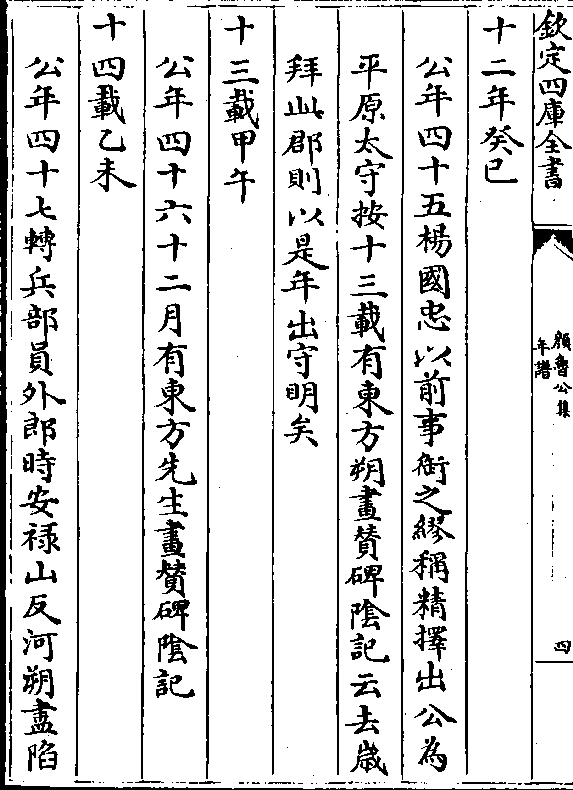 欽定四庫全書
顏魯公集
年譜
四
十二年癸巳
公年四十五楊國忠以前事銜之繆稱精擇出公為
平原太守按十三載有東方朔畫贊碑隂記云去歲
拜此郡則以是年出守明矣
十三載甲午
公年四十六十二月有東方先生畫贊碑隂記
十四載乙未
公年四十七轉兵部員外郎時安禄山反河朔盡陷